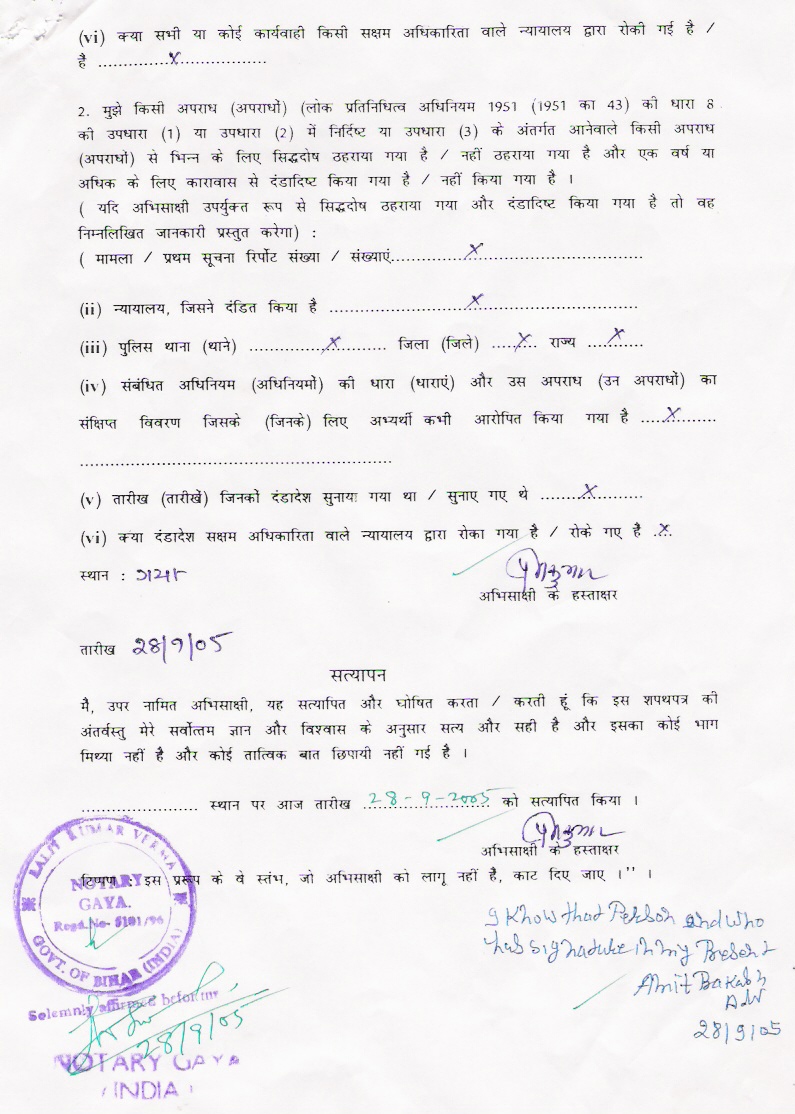 (vi) क्या सभी या कोई कार्यवाही किसी सक्षम अधिकारिता वाले न्यायालय द्वारा रोकी गई है /
है ..............x..................
2. मुझे किसी अपराध (अपराधों) (लोक प्रतिनिधित्व अधिनियम 1951 (1951 का 43) की धारा 8
की उपधारा (1) या उपधारा (2) में निर्दिष्ट या उपधारा (3) के अंतर्गत आनेवाले किसी अपराध
(अपराधों) से भिन्न के लिए सिद्धदोष ठहराया गया है / नहीं ठहराया गया है और एक वर्ष या
अधिक के लिए कारावास से दंडादिष्ट किया गया है / नहीं किया गया है ।
( यदि अभिसाक्षी उपर्युक्त रूप से सिद्धदोष ठहराया गया और दंडादिष्ट किया गया है तो वह
निम्नलिखित जानकारी प्रस्तुत करेगा) :
( मामला / प्रथम सूचना रिर्पोट संख्या / संख्याएं..............x..............................
(ii) न्यायालय, जिसने दंडित किया है ..........................x..............................
(iii) पुलिस थाना (थाने) ...............x.......... जिला (जिले) .....x... राज्य .....x.....
(iv) संबंधित अधिनियम (अधिनियमों) की धारा (धाराएं) और उस अपराध (उन अपराधों) का
संक्षिप्त विवरण जिसके (जिनके) लिए अभ्यर्थी कभी आरोपित किया गया है .....x.........
............................................................
(v) तारीख (तारीखें) जिनको दंडादेश सुनाया गया था / सुनाए गए थे ........x..........
(vi) क्या दंडादेश सक्षम अधिकारिता वाले न्यायालय द्वारा रोका गया है / रोके गए है ..x.
स्थान : गया
अभिसाक्षी के हस्ताक्षर
तारीख 28/9/05
सत्यापन
मै, उपर नामित अभिसाक्षी, यह सत्यापित और घोषित करता / करती हूं कि इस शपथपत्र की
अंतर्वस्तु मेरे सर्वोत्तम ज्ञान और विश्वास के अनुसार सत्य और सही है और इसका कोई भाग
मिथ्या नहीं है और कोई तात्विक बात छिपायी नहीं गई है ।
...................... स्थान पर आज तारीख 28-9-2005 को सत्यापित किया ।
अभिसाक्षी के हस्ताक्षर
टिप्पण : इस प्ररूप के वे स्तंभ, जो अभिसाक्षी को लागू नहीं है, काट दिए जाए ।'' ।
LALIT KUMAR VERMA
NOTARY
GAYA.
Regd. No- 5101/96
GOVT. OF BIHAR (INDIA)
I Know that Person and who
has signature in my Present
Amit
Adv
28/9/05
Solemnly affirmed before me
28/9/05
NOTARY GAYA
(INDIA)